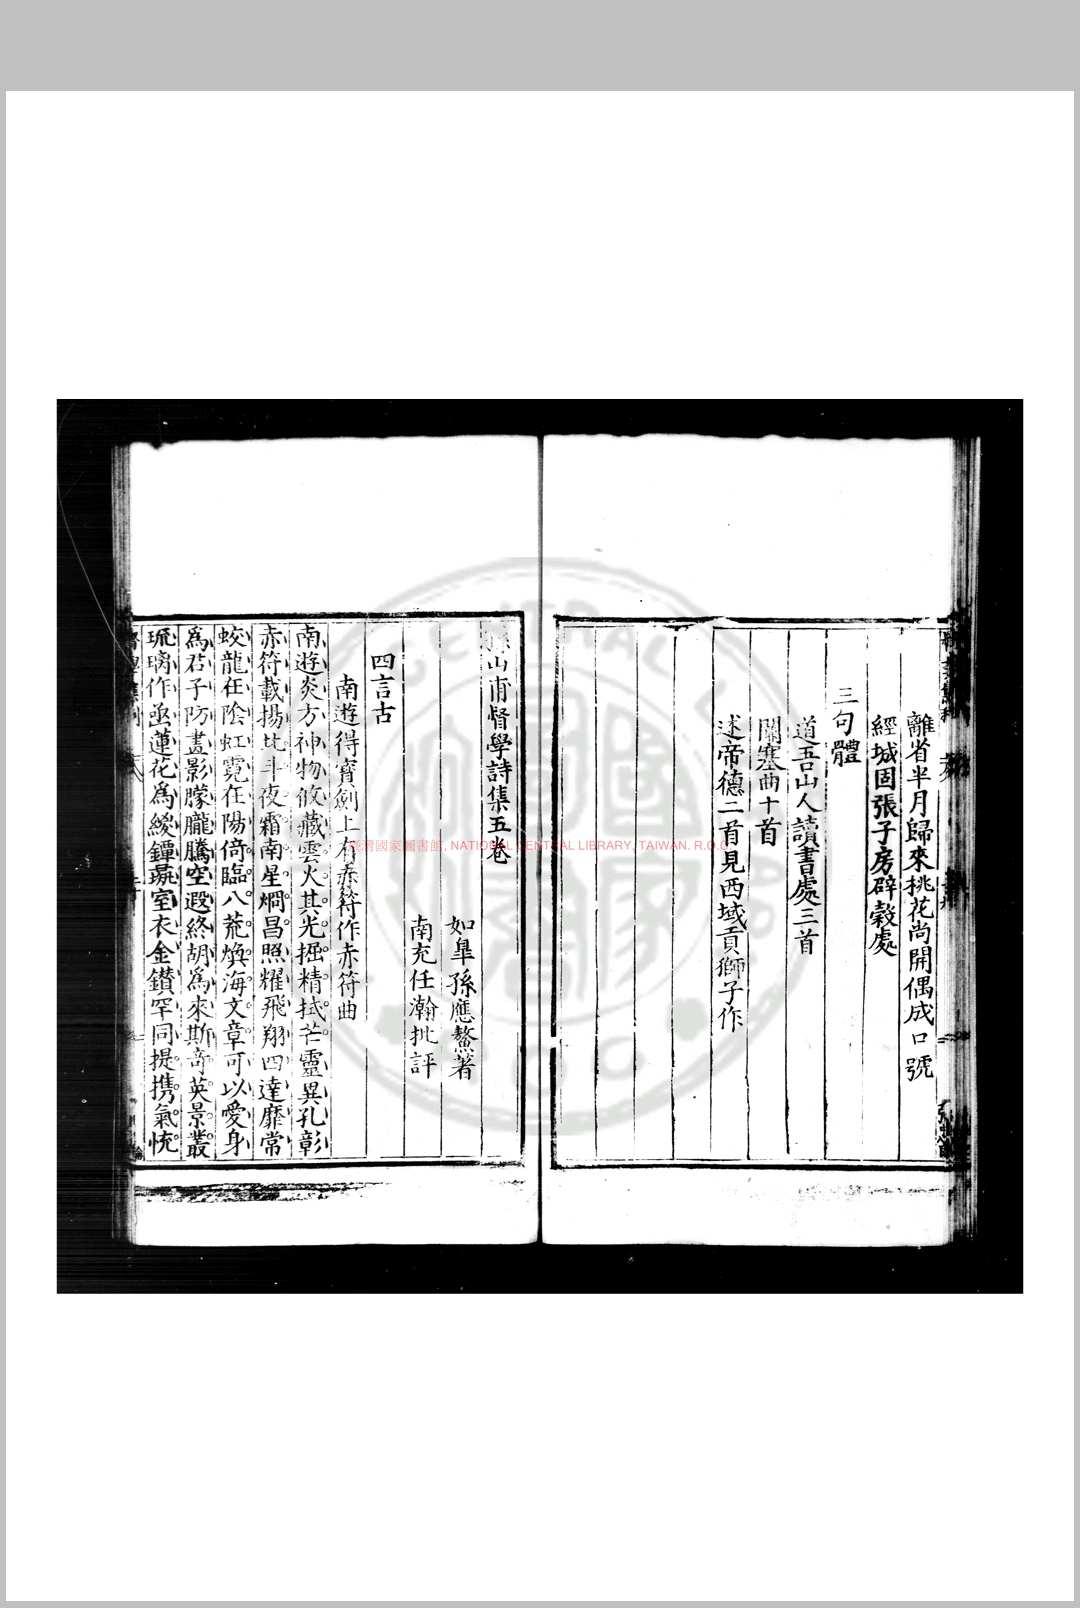 離省半月歸來挑花尚開偶成口號
經城固張子房辟穀處
三句體
道吾山人讀書處三首
關塞曲十首
述帝德二首見西域貢獅子作
孫山甫督學詩集五卷
如臯孫應鰲著
南充任瀚批評
四言古
南遊得寶劍上有赤符作赤符曲
南遊炎方神物攸藏雲火其光掘精拭芒靈異孔彰
赤符載揚北斗夜霜南星烱昌照耀飛翔四達靡常
蛟龍在陰虹霓在陽倚臨八荒煥海文章可以愛身
為君子防晝影朦朧騰空遐終胡為來斯奇英景叢
琉璃作函蓮花為綬鐔珥室衣金鑚罕同提攜氣恍
臺灣國家圖書館, NATIONAL CENTRAL LIBRARY, TAIWAN. R.O.C